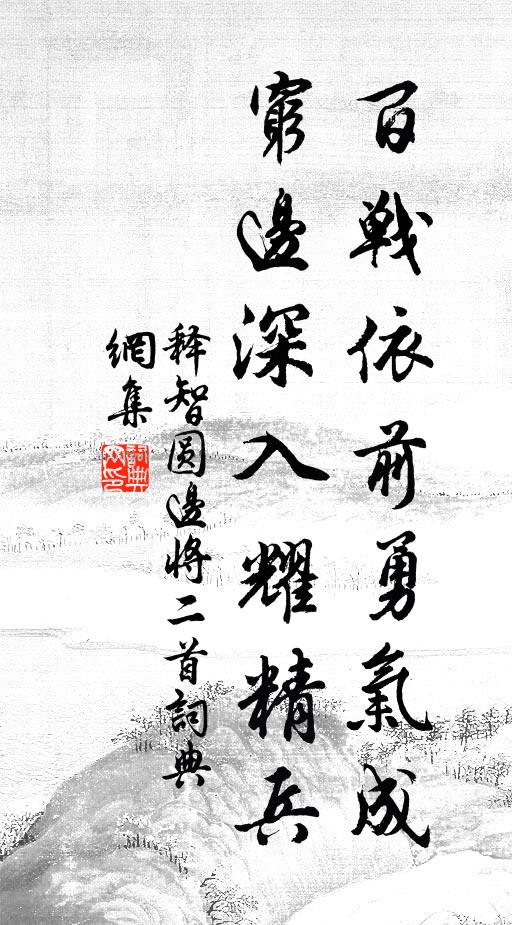 百戰依前勇氣成
窮邊深入耀精兵
释智圆邊将二首詞典
網集
詞典网印